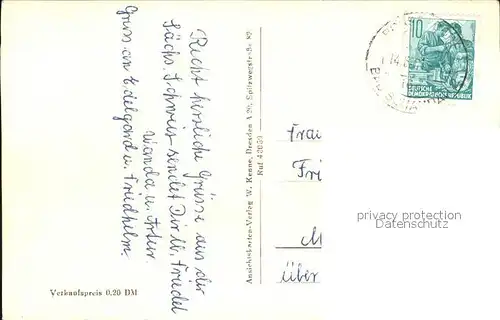 Recht herzliche Grüsse aus der
Sächs. Schweiz sendet Dir u. Friedel
Wanda u. Artur.
Gruss an Edelgard u. Friedhelm.
Verkaufspreis 0,20 DM
Ansichtskarten-Verlag W. Kenne, Dresden A 20, Spitzwegstraße 82
Ruf 42059
10
DEUTSCHE
DEMOKRATISCHE REPUBLIK
14.
Frau
Fri
über
privacy protection
Datenschutz